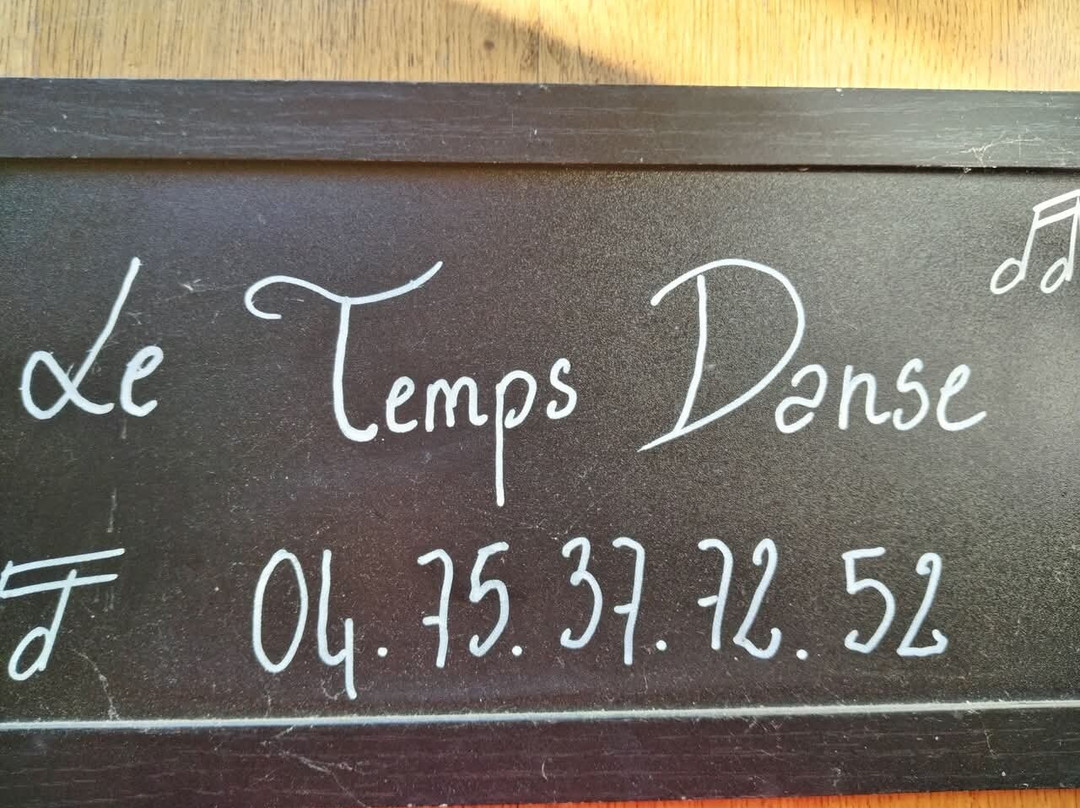 Le Temps Danse
04.75.37.72.52